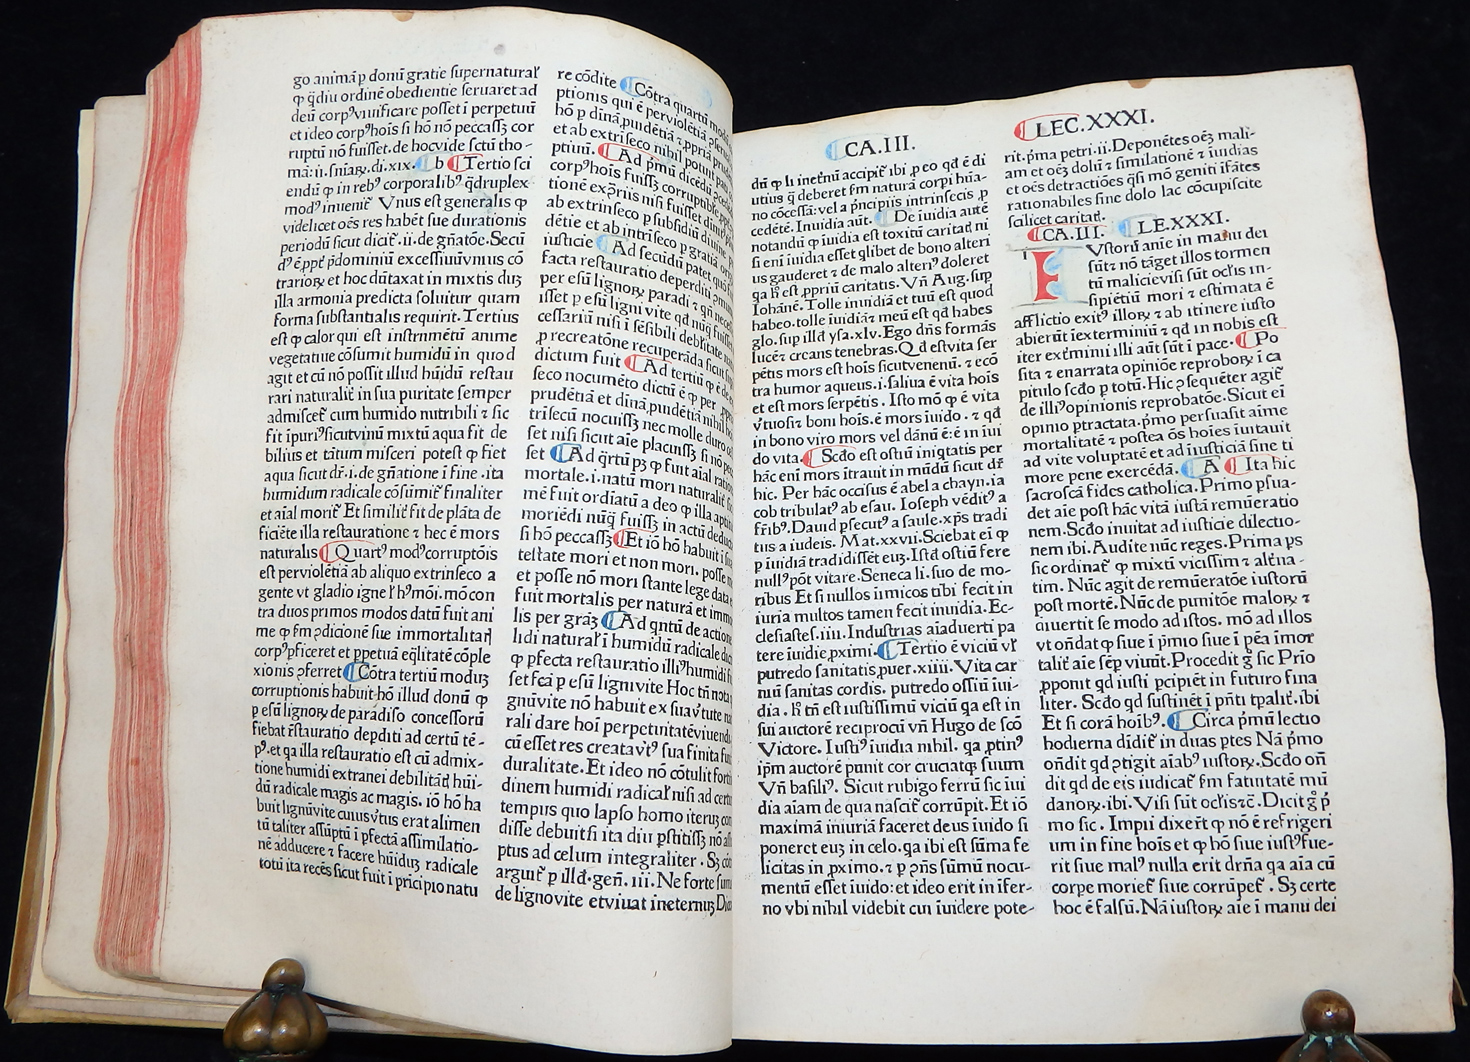 go animā p donū gratie supernatural'
ꝙ q̄diu ordinē obedientie seruaret ad
deū corpꝰ viuificare posset ī perpetuū
et ideo corpꝰ hoīs si hō nō peccass̄ cor
ruptū nō fuisset. de hoc vide sctū tho-
mā: ii. sniar̄. di. xix. b Tertio sci
endū ꝙ in rebꝰ corporalibꝰ q̄druplex
modꝰ inuenit̄ Vnus est generalis ꝙ
videlicet oēs res habēt sue durationis
periodū sicut dicit̄. ii. de gn̄atōe. Secū
trariorꝝ et hoc dūtaxat in mixtis dū
illa armonia predicta soluitur quam
forma substantialis requirit. Tertius
est ꝙ calor qui est instrmētū anime
vegetatiue cōsumit humidū in quod
agit et cū nō possit illud hūidū restau
rari naturalit̄ in sua puritate semper
admiscet̄ cum humido nutribili ⁊ sic
fit ipuriꝰ sicut vinū mixtū aqua fit de
bilius et tātum misceri potest ꝙ fiet
aqua sicut dr̄. i. de gn̄atione ī fine. ita
humidum radicale cōsumit̄ finaliter
et aīal morit̄ Et similit̄ fit de plāta de
ficiēte illa restauratione ⁊ hec ē mors
naturalis Quartꝰ modꝰ corruptōis
est per violētiā ab aliquo extrinseco a
gente vt gladio igne l' hꝰmōi. mō con
tra duos primos modos datū fuit ani
me ꝙ fm ꝯdicionē sue immortalitatꝭ
corpꝰ pficeret et ppetuā eq̄litatē cōple
xionis ꝯferret Cōtra tertiū modū
corruptionis habuit hō illud donū ꝙ
p esū lignorꝝ de paradiso concessorū
fiebat r̄stauratio depditi ad certū tē-
pꝰ. et qa illa restauratio est cū admix-
tione humidi extranei debilitat̄ hūi-
dū radicale magis ac magis. iō hō ha
buit lignū vite cuius vtus erat alimen
tū taliter assūptū ī pfectā assimilatio-
nē adducere ⁊ facere hūidū radicale
totū ita recēs sicut fuit ī pricipio natu
re cōdite Cōtra quartū
ptionis qui ē per violētiā
hō p dinā prudētiā ⁊ ppriā
et ab extrīseco nihil potuit
ptiuū. Ad pmū dicēdū
corpꝰ hoīs fuiss̄ corruptibile
tionē exp̄riis nisi fuisset
ab extrinseco p subsidiū diuine
dētie et ab intrīseco p gratiā
iusticie Ad secūdū patet
facta restauratio deperditi
per esū lignorꝝ paradi ⁊ qn̄
isset p esū ligni vite qd nūꝙ
cessariū nisi ī sēsibili debilitate
p recreatōne recuperāda sicut
dictum fuit Ad tertiū
seco nocumēto dictū ē ꝙ per
prudētiā et dinā prudētiā nihil
trīsecū nocuiss̄ nec molle
set nisi sicut aīe placuiss̄ si nō
set Ad q̄rtū pꝫ ꝙ fuit aīal
mortale. i. natū mori naturalit̄
mē fuit ordīatū a deo ꝙ illa
moriēdi nūꝙ fuiss̄ in actū
si hō peccass̄ Et iō hō habuit
testate mori et non mori. posse
et posse nō mori stante lege data
fuit mortalis per naturā et immo
lis per grāꝫ Ad qntū de actione
lidi natural' ī humidū radicale
ꝙ pfecta restauratio illiꝰ humidi
set fca p esū ligni vite Hoc tn̄
gnū vite nō habuit ex sua vtute
rali dare hoī perpetuitatē viuendi
cū esset res creata vtꝰ sua finita
duralitate. Et ideo nō cōtulit
dinem humidi radical' nisi ad
tempus quo lapso homo iterum
disse debuit si ita diu pstitiss̄ nō
ptus ad celum integraliter. Sꝫ
arguit̄ p illd. gen̄. iii. Ne forte
de ligno vite et viuat in eternū
CA. III.
dū ꝙ li inet̄nū accipit̄ ibi p eo qd ē di
utius q̄ deberet fm naturā corpi hūa-
no cōcessā: vel a pncipiis intrinsecis p
cedētē. Inuidia aūt. De īuidia autē
notandū ꝙ īuidia est toxicū caritatꝭ ni
si enī īuidia esset qlibet de bono alteri
us gauderet ⁊ de malo alteriꝰ doleret
qa h̄ est ppriū caritatis. Vn̄ Aug. sup
Iohānē. Tolle inuidiā et tuū est quod
habeo. tolle īuidiā ⁊ meū est qd habes
glo. sup illd ysa. xlv. Ego dn̄s formās
lucē ⁊ creans tenebras. Qd est vita ser
pētis mors est hoīs sicut venenū. ⁊ ecō
tra humor aqueus. i. saliua ē vita hoīs
et est mors serpētis. Isto mō ꝙ ē vita
v̄tuosi ⁊ boni hoīs. ē mors īuido. ⁊ qd
in bono viro mors vel dānū ē: ē in īui
do vita. Scdo est ostiū iniqtatis per
hāc enī mors ītrauit in mūdū sicut dr̄
hic. Per hāc occisus ē abel a chayn. ia
cob tribulatꝰ ab esau. Ioseph vēditꝰ a
fr̄ibꝰ. Dauid psecutꝰ a saule. xp̄s tradi
tus a iudeis. Mat. xxvii. Sciebat eī ꝙ
p īuidiā tradidisset eū. Istd ostiū fere
nullꝰ pōt vitare. Seneca li. suo de mo-
ribus Et si nullos īimicos tibi fecit in
iuria multos tamen fecit inuidia. Ec-
clesiastes. iiii. Industrias aīaduerti pa
tere īuidie pximi. Tertio ē viciū vl'
putredo sanitatis. puer. xiiii. Vita car
niū sanitas cordis. putredo ossiū īui-
dia. h̄ tn̄ est iustissimū viciū qa est in
sui auctorē reciprocū vn̄ Hugo de scō
Victore. Iustiꝰ īuidia nihil. qa ptinꝰ
ipm auctorē punit cor cruciatqꝫ suum
Vn̄ basiliꝰ. Sicut rubigo ferrū sic īui
dia aīam de qua nascit̄ corrūpit. Et iō
maximā iniuriā faceret deus īuido si
poneret eū in celo. qa ibi est sūma fe
licitas in pximo. ⁊ p ꝯn̄s sūmū nocu-
mentū esset īuido: et ideo erit in īfer-
no vbi nihil videbit cui īuidere pote-
LEC. XXXI.
rit. pma petri. ii. Deponētes oēꝫ mali-
am et oēꝫ dolū ⁊ similationē ⁊ īuidias
et oēs detractiōes q̄si mō geniti īfātes
rationabiles sine dolo lac cōcupiscite
scilicet caritatꝭ.
CA. III. LE. XXXI.
I Vstorū aīe in manu dei
sūt ⁊ nō tāget illos tormen
tū malicie visi sūt oclis in-
sipiētiū mori ⁊ estimata ē
afflictio exitꝰ illorꝝ ⁊ ab itinere iusto
abierūt ī exterminiū ⁊ qd in nobis est
iter ext̄mini illi aūt sūt ī pace. Po
sita ⁊ enarrata opiniōe reproborꝝ ī ca
pitulo scdo p totū. Hic ꝯsequēter agit̄
de illiꝰ opinionis reprobatōe. Sicut eī
opinio ptractata. pmo persuasit aīme
mortalitatē ⁊ postea oēs hoīes īuitauit
ad vite voluptatē et ad īiusticiā sine ti
more pene exercēdā. A Ita hic
sacroscā fides catholica. Primo psua-
det aīe post hāc vitā iustā remūeratio
nem. Scdo inuitat ad iusticie dilectio-
nem ibi. Audite nūc reges. Prima ps
sic ordinat̄ ꝙ mixtū vicissim ⁊ alt̄na-
tim. Nūc agit de remūeratōe iustorū
post mortē. Nūc de punitōe malorꝝ ⁊
diuertit se modo ad istos. mō ad illos
vt ondat ꝙ siue ī pmo siue ī pēa īmor
talit̄ aīe sēp viuūt. Procedit g̊ sic Prīo
pponit qd iusti pcipiēt in futuro fina
liter. Scdo qd sustinēt ī pn̄ti tpalit̄. ibi
Et si corā hoībꝰ. Circa pmū lectio
hodierna diuidit̄ in duas ptes Nā pmo
on̄dit qd ꝯtigit aīabꝰ iustorꝝ. Scdo on̄
dit qd de eis iudicat̄ fm fatuitatē mū
danorꝝ. ibi. Visi sūt oclis ⁊c̄. Dicit g̊ p
mo sic. Impii dixer̄t ꝙ nō ē refrigeri
um in fine hoīs et ꝙ hō siue iustꝰ fue-
rit siue malꝰ nulla erit drn̄a qa aīa cū
corpe moriet̄ siue corrūpet̄. Sꝫ certe
hoc ē falsū. Nā iustorꝝ aīe ī manu dei